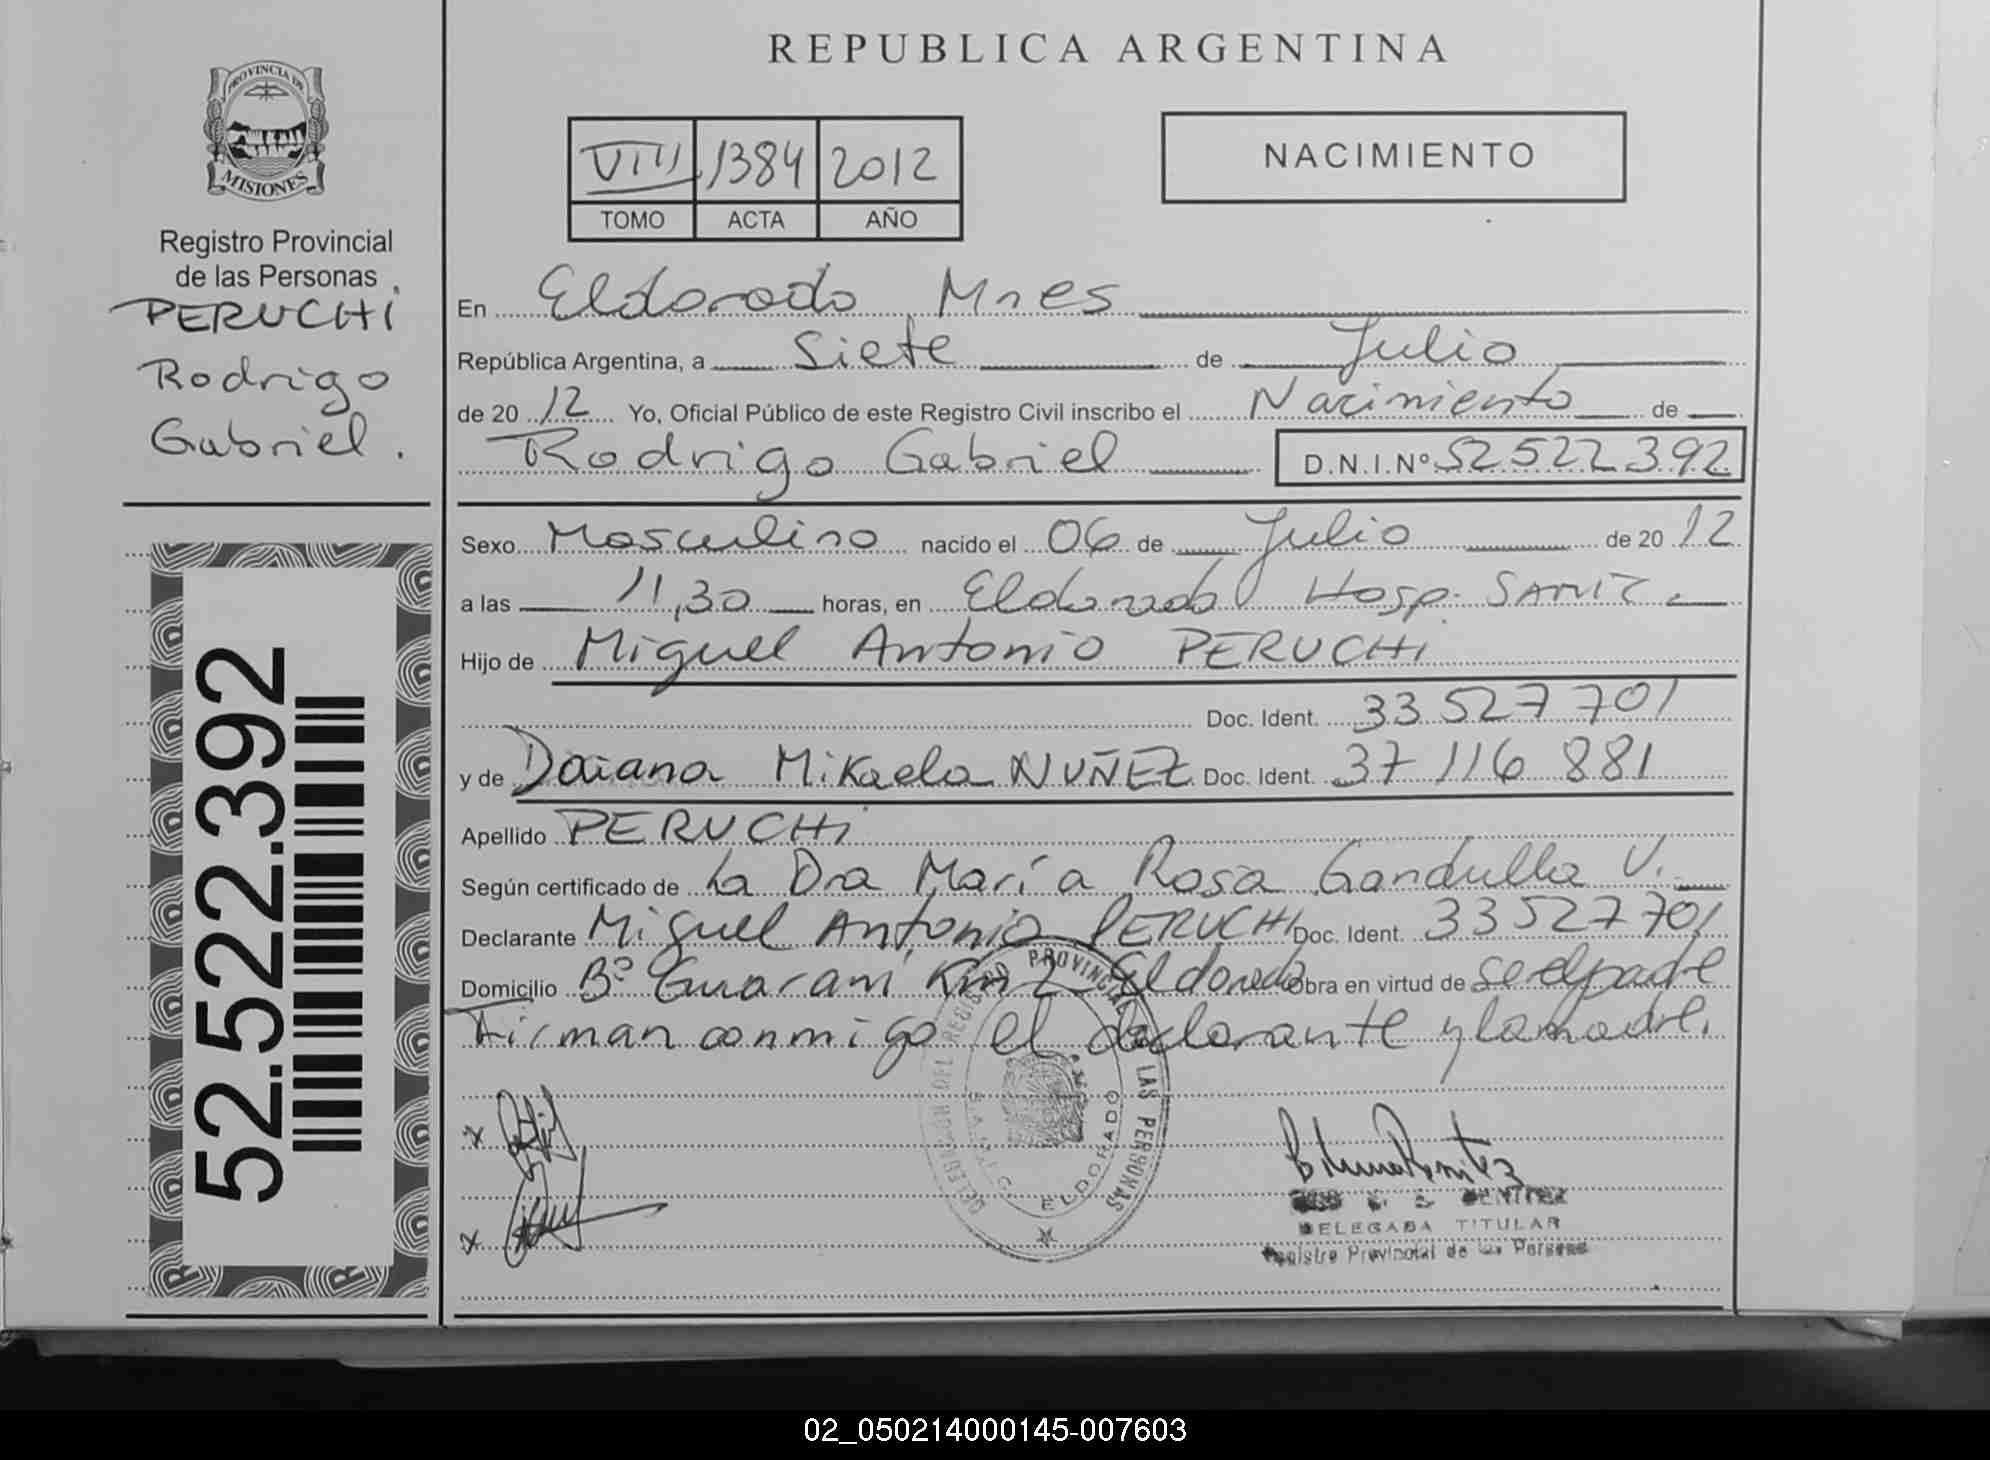 REPUBLICA ARGENTINA
PROVINCIA DE
MISIONES
Registro Provincial
de las Personas
PERUCHI
Rodrigo
Gabriel.
52.522.392
VIII 1384 2012
TOMO ACTA AÑO
NACIMIENTO
En Eldorado Mnes
República Argentina, a Siete de Julio
de 20 12 Yo, Oficial Público de este Registro Civil inscribo el Nacimiento de
Rodrigo Gabriel D.N.I.Nº 52 522 392
Sexo Masculino nacido el 06 de Julio de 20 12
a las 11,30 horas, en Eldorado Hosp. SAMIC
Hijo de Miguel Antonio PERUCHI
Doc. Ident. 33 527 701
y de Daiana Mikaela NUÑEZ Doc. Ident. 37 116 881
Apellido PERUCHI
Según certificado de La Dra María Rosa Gandulla V.
Declarante Miguel Antonio PERUCHI Doc. Ident. 33 527 701
Domicilio Bº Guarani Km 2 Eldorado Obra en virtud de ser el padre
Firman conmigo el declarante y la madre.
DELEGACION DEL REGISTRO PROVINCIAL DE LAS PERSONAS
ELDORADO
BENITEZ
DELEGADA TITULAR
Registro Provincial de las Personas
02_050214000145-007603